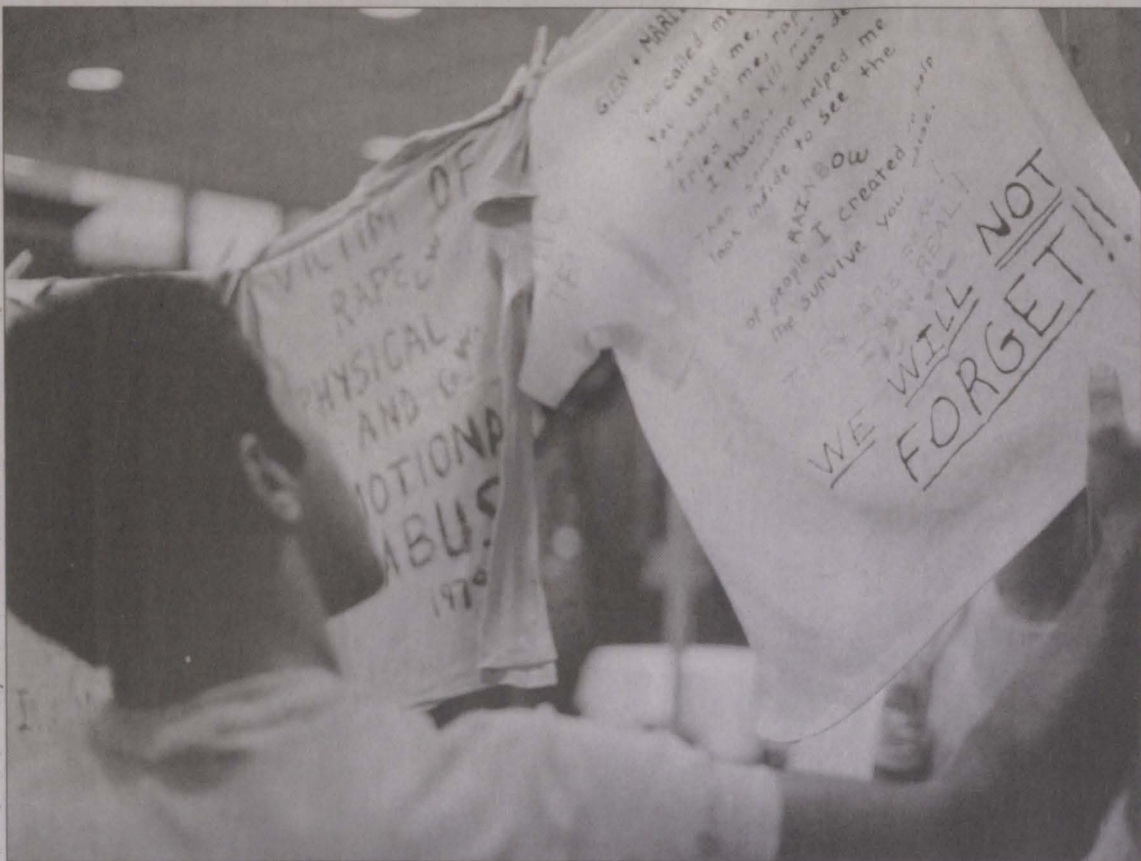 VICTIM OF
RAPE
PHYSICAL
AND
MOTIONA
ABUS
197
GLEN + MARI
You called me
You used me,
tortured me, rap
tried to kill me.
I thought I was de
Than someone helped me
look inside to see the
RAINBOW
of people I created to help
me survive your
THEY ARE REAL!
REAL!
WE WILL NOT
FORGET!!